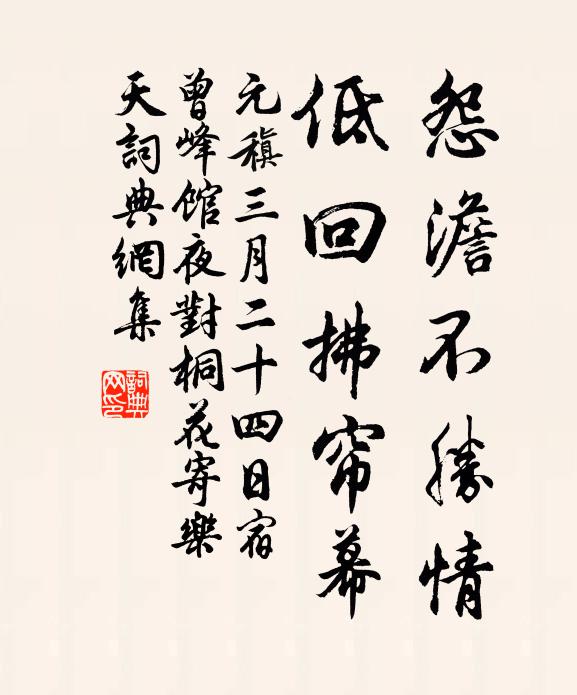 怨澹不勝情
低回拂帘幕
元稹三月二十四日宿
曾峰館夜對桐花寄樂
天詞典網集
詞典网印